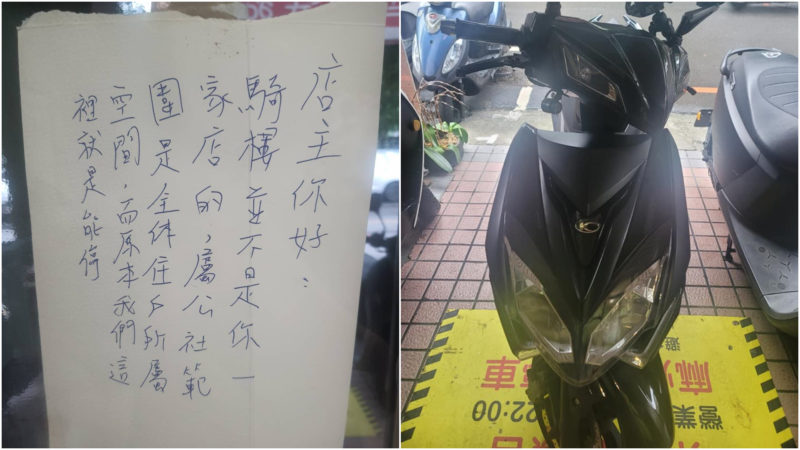 店主你好:
騎樓並不是你一
家店的,屬公社範
圍是全体住戶所屬
空間,而原本我們這
裡就是能停
營業
22:00
麻
車